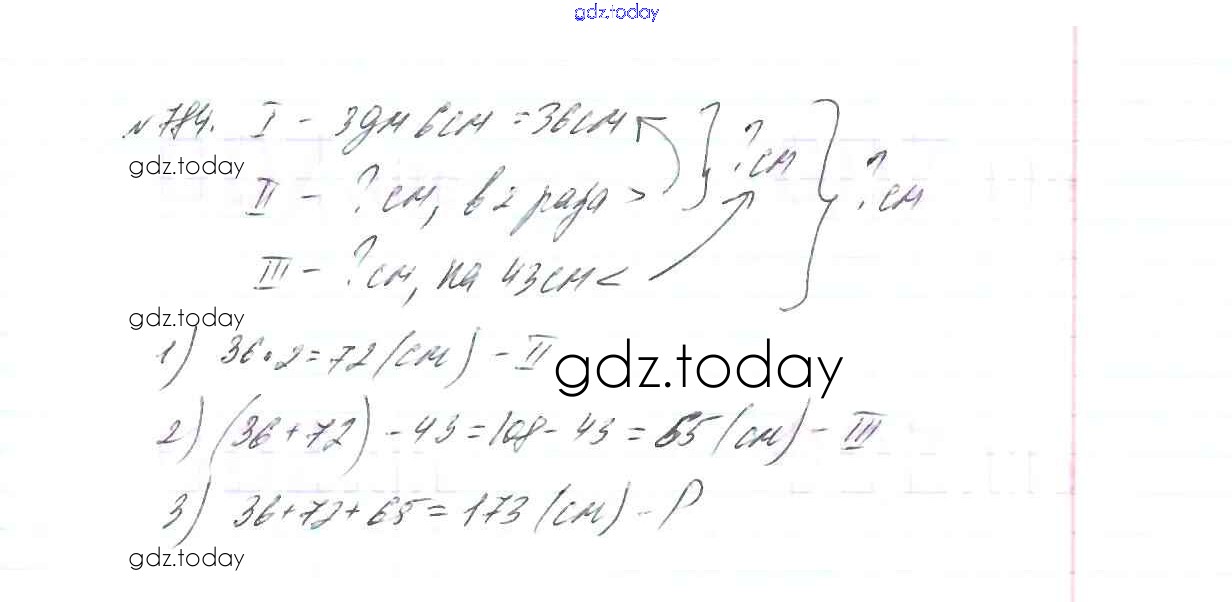 gdz.today
№784. I - 3дм 6см = 36см } ?см } ?см
gdz.today
II - ?см, в 2 раза >
III - ?см, на 43см <
gdz.today
1) 36·2=72 (см) - II
gdz.today
2) (36+72) - 43 = 108 - 43 = 65 (см) - III
3) 36+72+65 = 173 (см) - P
gdz.today